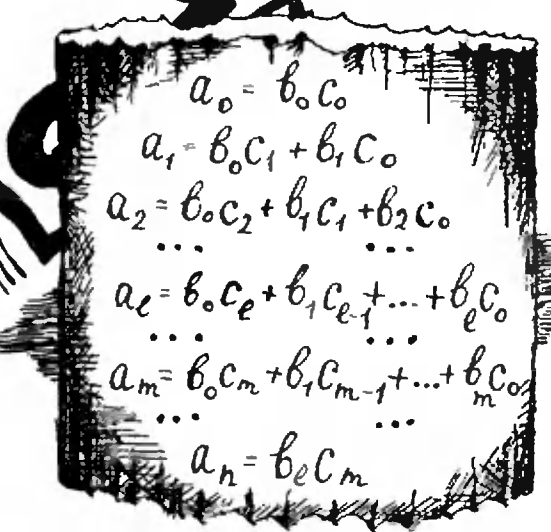 a₀ = b₀c₀
a₁ = b₀c₁ + b₁c₀
a₂ = b₀c₂ + b₁c₁ + b₂c₀
... ...
aₑ = b₀cₑ + b₁cₑ₋₁ + ... + bₑc₀
... ...
aₘ = b₀cₘ + b₁cₘ₋₁ + ... + bₘc₀
... ...
aₙ = bₑcₘ